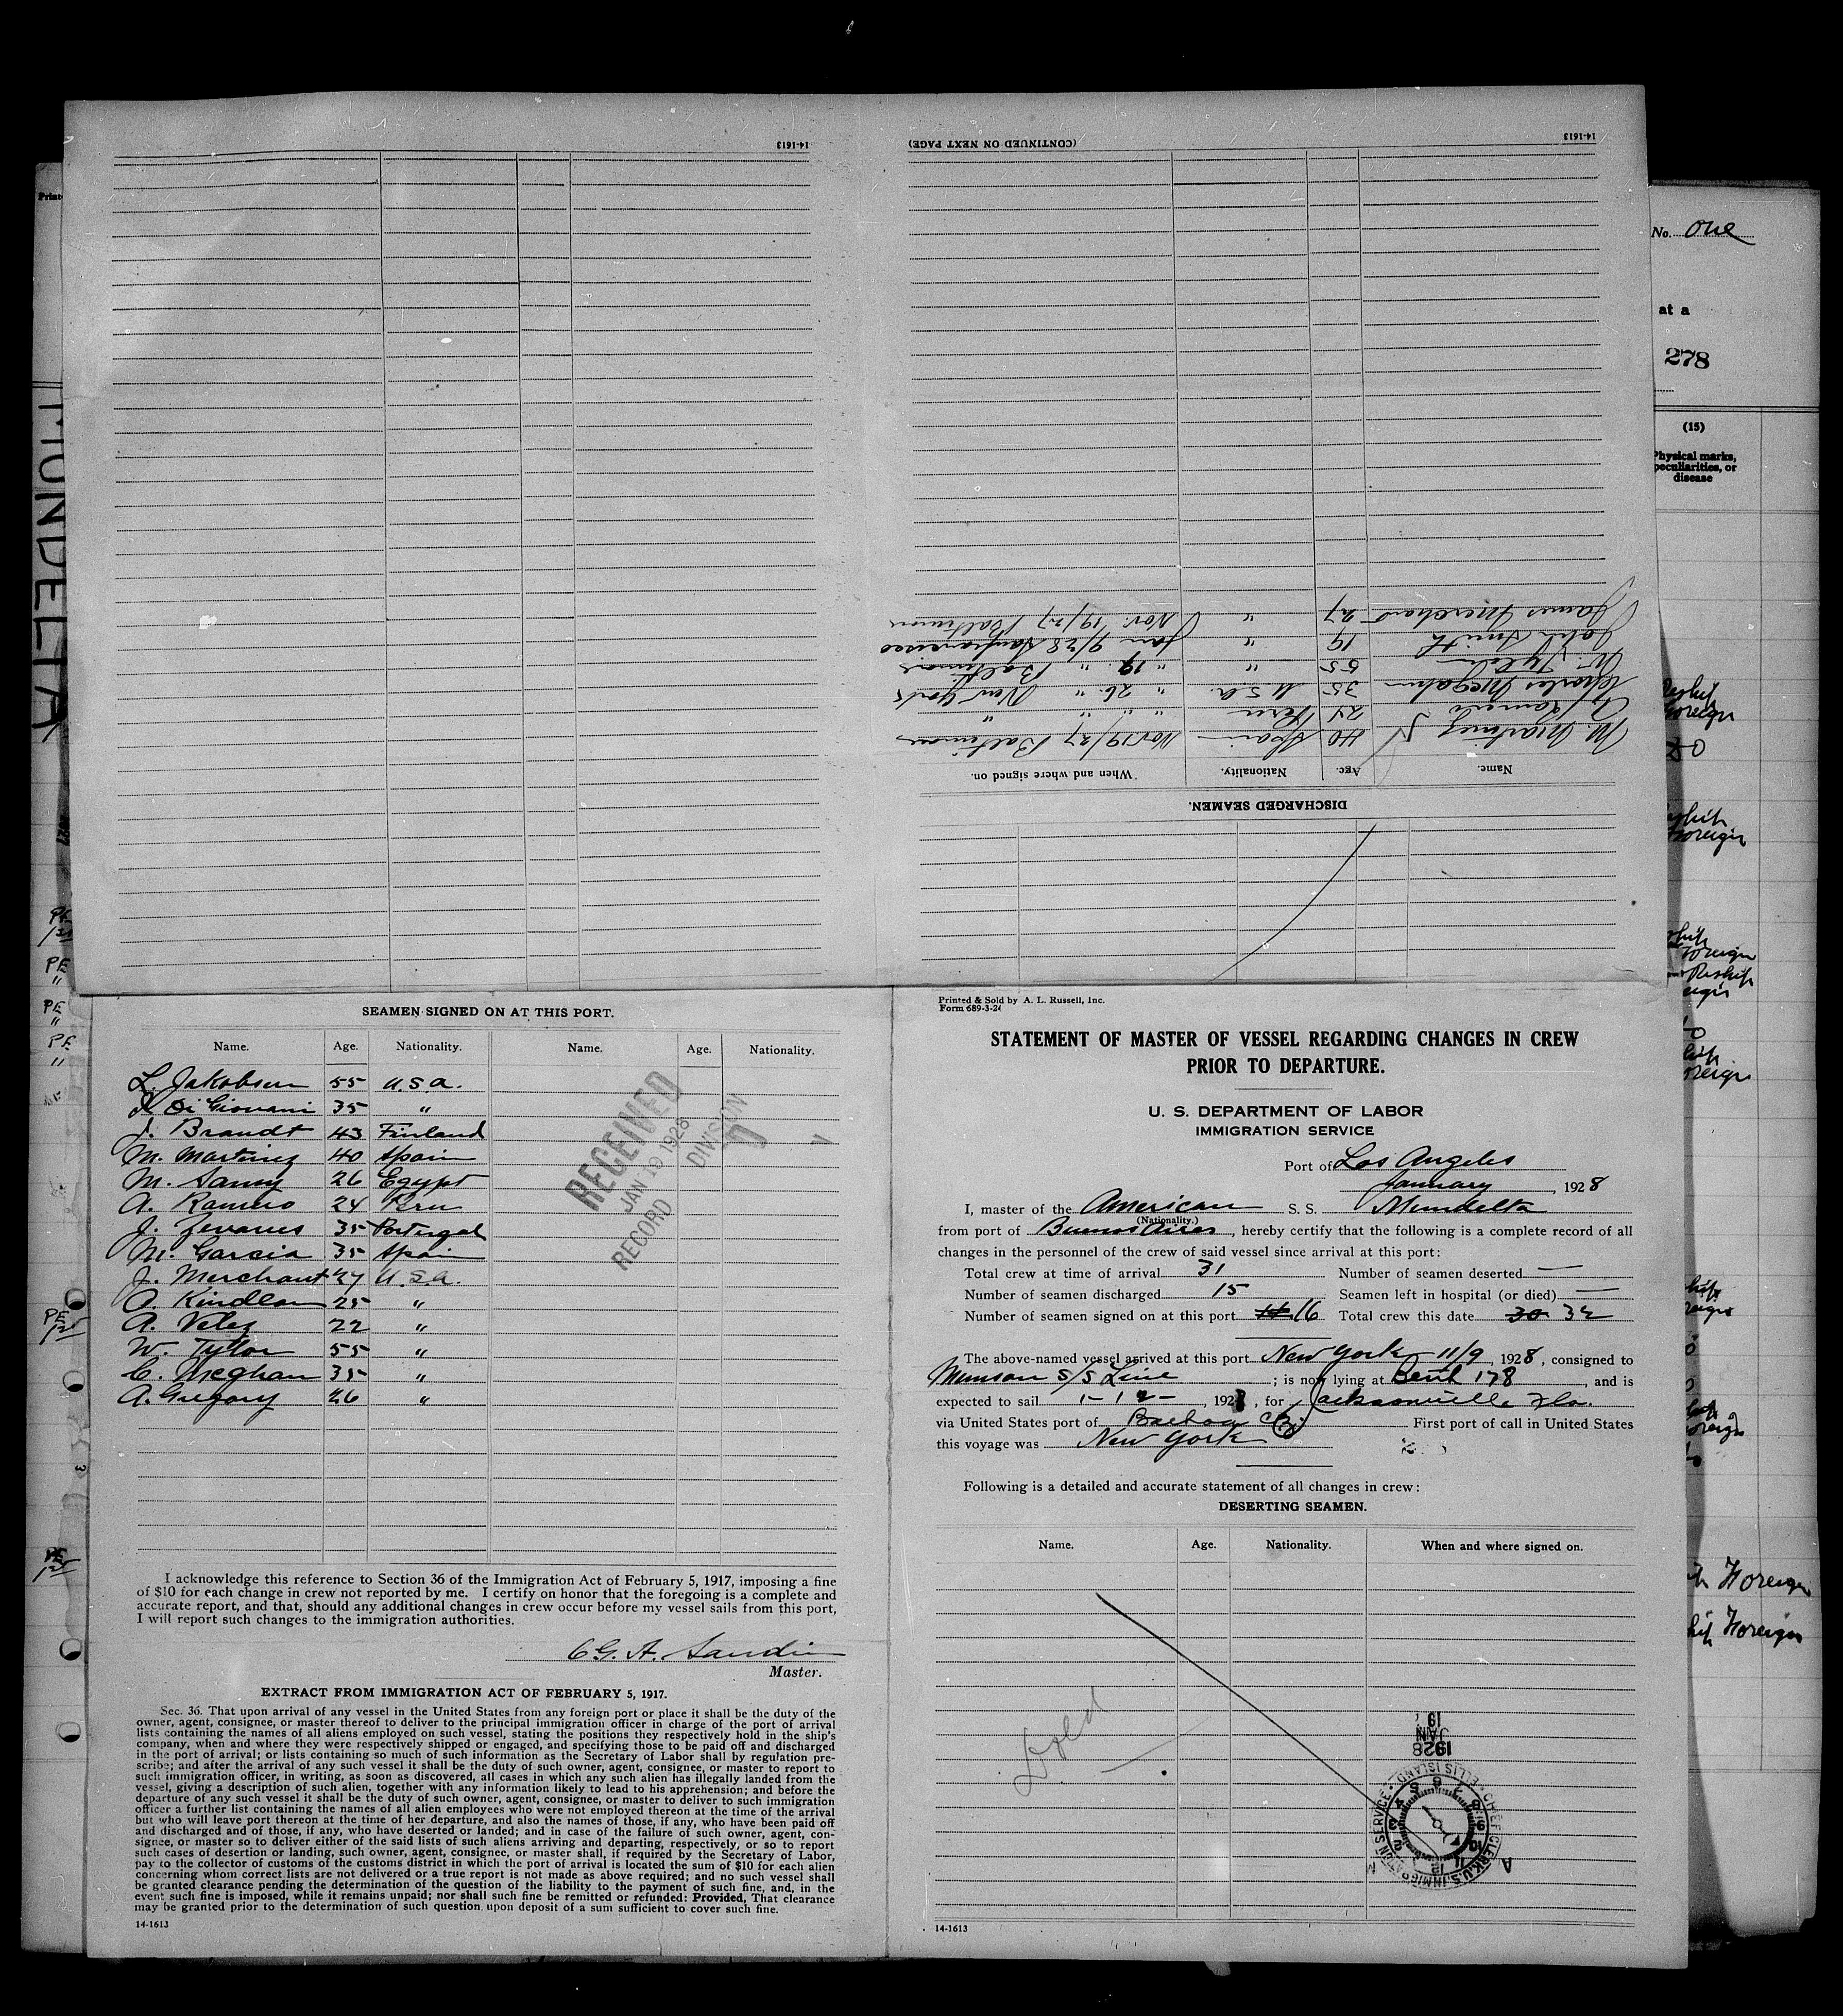 14-1613
(CONTINUED ON NEXT PAGE)
14-1613
DISCHARGED SEAMEN.
Name. Age. Nationality. When and where signed on.
M. Martinez 40 Spain Nov 19/27 Baltimore
A. Ramero 24 Peru " " " "
Charles Megahan 35 U.S.a. " 26 " New York
W. Tylor 55 " " 19 " Baltimore
John Smith 19 " Jan 9/28 Sanfrancisco
James Merchant 27 " Nov. 19/27 Baltimore
No. one
at a
278
(15)
Physical marks, peculiarities, or disease
MUNDELTA
SEAMEN SIGNED ON AT THIS PORT.
Name. Age. Nationality. Name. Age. Nationality.
L. Jakobsen 55 U.S.a.
Di Giovani 35 "
J. Brandt 43 Finland
M. Martinez 40 Spain
M. Samy 26 Egypt
A. Ramero 24 Peru
J. Zevares 35 Portugal
M. Garcia 35 Spain
J. Merchant 27 U.S.a.
A. Kindlan 25 "
A. Velez 22 "
W. Tylor 55 "
C. Meghan 35 "
A. Gregory 26 "
RECEIVED
JAN 19 1928
RECORD DIVISION
I acknowledge this reference to Section 36 of the Immigration Act of February 5, 1917, imposing a fine
of $10 for each change in crew not reported by me. I certify on honor that the foregoing is a complete and
accurate report, and that, should any additional changes in crew occur before my vessel sails from this port,
I will report such changes to the immigration authorities.
C.G.A. Sandin
Master.
EXTRACT FROM IMMIGRATION ACT OF FEBRUARY 5, 1917.
Sec. 36. That upon arrival of any vessel in the United States from any foreign port or place it shall be the duty of the
owner, agent, consignee, or master thereof to deliver to the principal immigration officer in charge of the port of arrival
lists containing the names of all aliens employed on such vessel, stating the positions they respectively hold in the ship's
company, when and where they were respectively shipped or engaged, and specifying those to be paid off and discharged
in the port of arrival; or lists containing so much of such information as the Secretary of Labor shall by regulation pre-
scribe; and after the arrival of any such vessel it shall be the duty of such owner, agent, consignee, or master to report to
such immigration officer, in writing, as soon as discovered, all cases in which any such alien has illegally landed from the
vessel, giving a description of such alien, together with any information likely to lead to his apprehension; and before the
departure of any such vessel it shall be the duty of such owner, agent, consignee, or master to deliver to such immigration
officer a further list containing the names of all alien employees who were not employed thereon at the time of the arrival
but who will leave port thereon at the time of her departure, and also the names of those, if any, who have been paid off
and discharged and of those, if any, who have deserted or landed; and in case of the failure of such owner, agent, con-
signee, or master so to deliver either of the said lists of such aliens arriving and departing, respectively, or so to report
such cases of desertion or landing, such owner, agent, consignee, or master shall, if required by the Secretary of Labor,
pay to the collector of customs of the customs district in which the port of arrival is located the sum of $10 for each alien
concerning whom correct lists are not delivered or a true report is not made as above required; and no such vessel shall
be granted clearance pending the determination of the question of the liability to the payment of such fine, and, in the
event such fine is imposed, while it remains unpaid; nor shall such fine be remitted or refunded: Provided, That clearance
may be granted prior to the determination of such question upon deposit of a sum sufficient to cover such fine.
14-1613
Printed & Sold by A. L. Russell, Inc.
Form 689-3-24
STATEMENT OF MASTER OF VESSEL REGARDING CHANGES IN CREW
PRIOR TO DEPARTURE.
U. S. DEPARTMENT OF LABOR
IMMIGRATION SERVICE
Port of Los Angeles
January, 1928
I, master of the American S. S. Mundelta
(Nationality.)
from port of Buenos Aires, hereby certify that the following is a complete record of all
changes in the personnel of the crew of said vessel since arrival at this port:
Total crew at time of arrival 31 Number of seamen deserted —
Number of seamen discharged 15 Seamen left in hospital (or died) —
Number of seamen signed on at this port 16 Total crew this date 30 32
The above-named vessel arrived at this port New York 11/9, 1928, consigned to
Munson S/S Line; is now lying at Berth 178, and is
expected to sail 1-12-, 1928, for Jacksonville Fla.
via United States port of Balboa C.Z. First port of call in United States
this voyage was New York
Following is a detailed and accurate statement of all changes in crew:
DESERTING SEAMEN.
Name. Age. Nationality. When and where signed on.
1928
JAN
19
CHIEF CLERK, U.S. IMMIGRATION SERVICE ELLIS ISLAND
14-1613